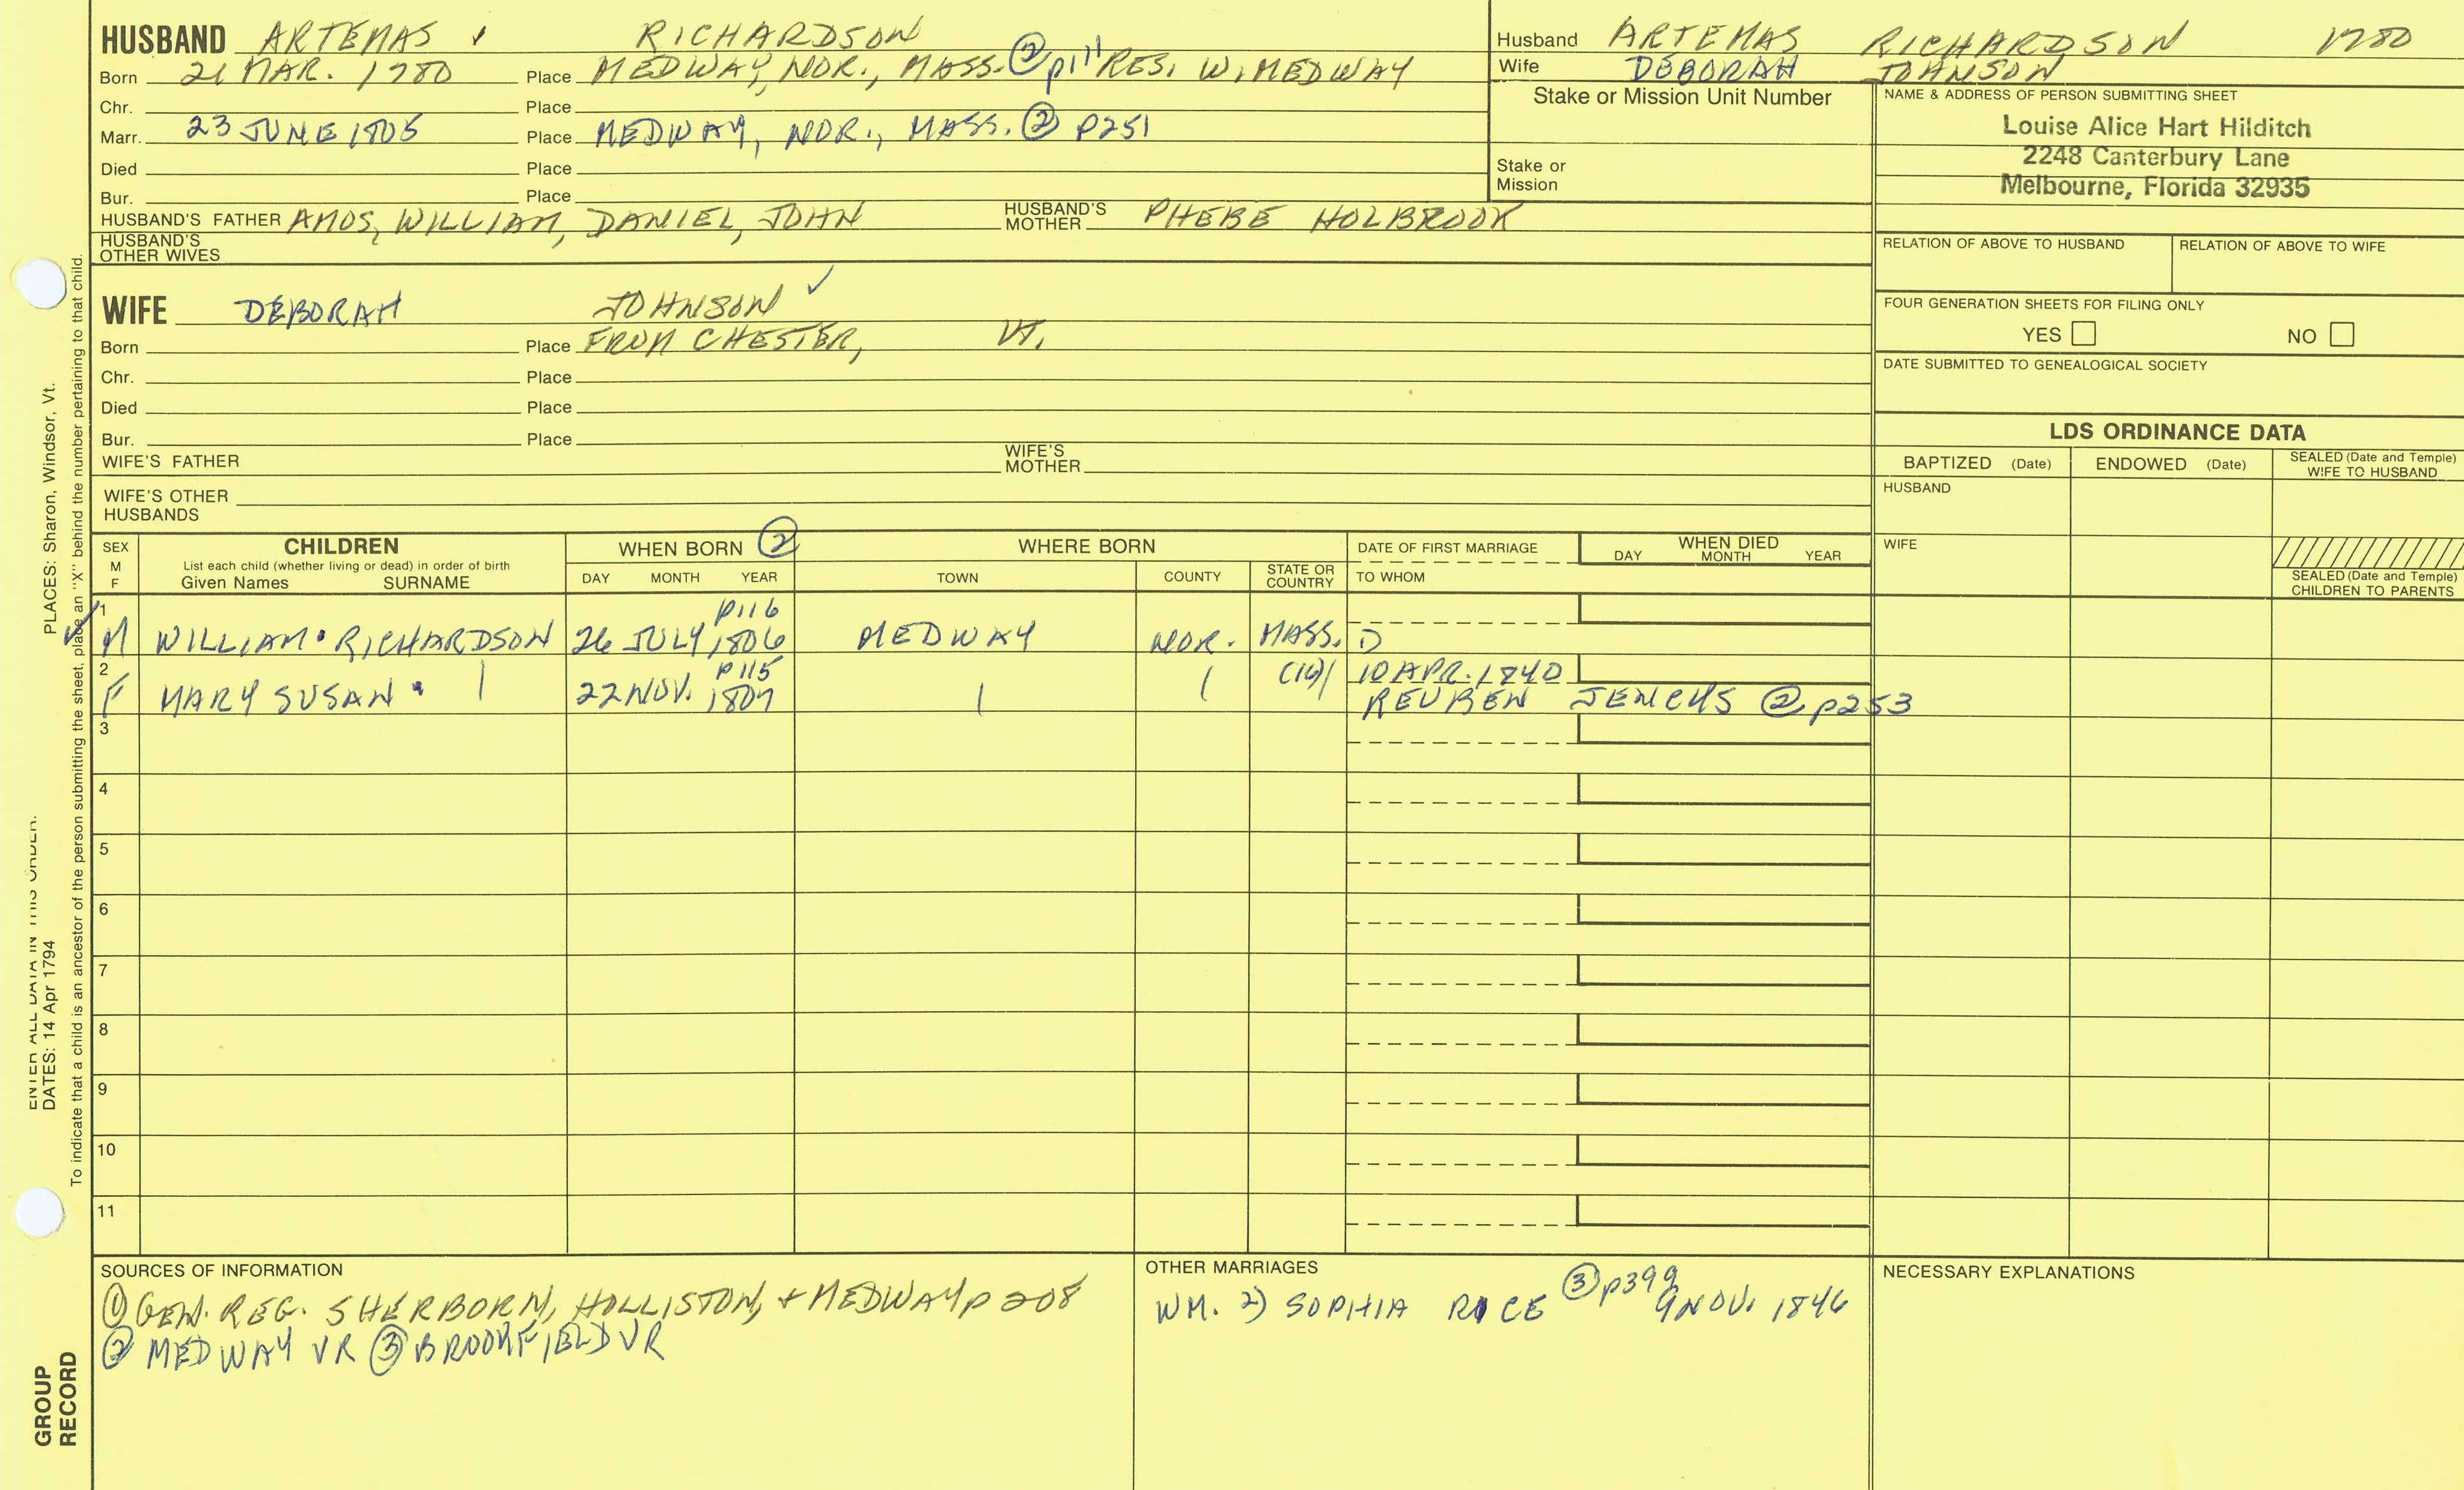 HUSBAND ARTEMAS RICHARDSON
Born 21 MAR. 1780 Place MEDWAY, NOR., MASS. ② p111 RES. W. MEDWAY
Chr. Place
Marr. 23 JUNE 1805 Place MEDWAY, NOR., MASS. ② p251
Died Place
Bur. Place
HUSBAND'S FATHER AMOS, WILLIAM, DANIEL, JOHN HUSBAND'S MOTHER PHEBE HOLBROOK
HUSBAND'S OTHER WIVES
WIFE DEBORAH JOHNSON ✓
Born Place FROM CHESTER, VT.
Chr. Place
Died Place
Bur. Place
WIFE'S FATHER WIFE'S MOTHER
WIFE'S OTHER HUSBANDS
Husband ARTEMAS RICHARDSON 1780
Wife DEBORAH JOHNSON
Stake or Mission Unit Number
Stake or Mission
NAME & ADDRESS OF PERSON SUBMITTING SHEET
Louise Alice Hart Hilditch
2248 Canterbury Lane
Melbourne, Florida 32935
RELATION OF ABOVE TO HUSBAND RELATION OF ABOVE TO WIFE
FOUR GENERATION SHEETS FOR FILING ONLY
YES NO
DATE SUBMITTED TO GENEALOGICAL SOCIETY
LDS ORDINANCE DATA
BAPTIZED (Date) ENDOWED (Date) SEALED (Date and Temple) WIFE TO HUSBAND
HUSBAND
WIFE
SEALED (Date and Temple) CHILDREN TO PARENTS
SEX M F
CHILDREN
List each child (whether living or dead) in order of birth
Given Names SURNAME
WHEN BORN ②
DAY MONTH YEAR
WHERE BORN
TOWN COUNTY STATE OR COUNTRY
DATE OF FIRST MARRIAGE
TO WHOM
WHEN DIED
DAY MONTH YEAR
1 p116
M WILLIAM RICHARDSON 26 JULY 1806 MEDWAY NOR. MASS. D
2 p115 (16) 10 APR. 1840
F MARY SUSAN 22 NOV. 1807 REUBEN JENCKS ② p253
3
4
5
6
7
8
9
10
11
SOURCES OF INFORMATION
① GEN. REG. SHERBORN, HOLLISTON, + MEDWAY p 208
② MEDWAY VR ③ BROOKFIELD VR
OTHER MARRIAGES
WM. 2) SOPHIA RICE ③ p399 9 NOV. 1846
NECESSARY EXPLANATIONS
ENTER ALL DATA IN THIS ORDER:
DATES: 14 Apr 1794 PLACES: Sharon, Windsor, Vt.
To indicate that a child is an ancestor of the person submitting the sheet, place an "X" behind the number pertaining to that child.
GROUP RECORD